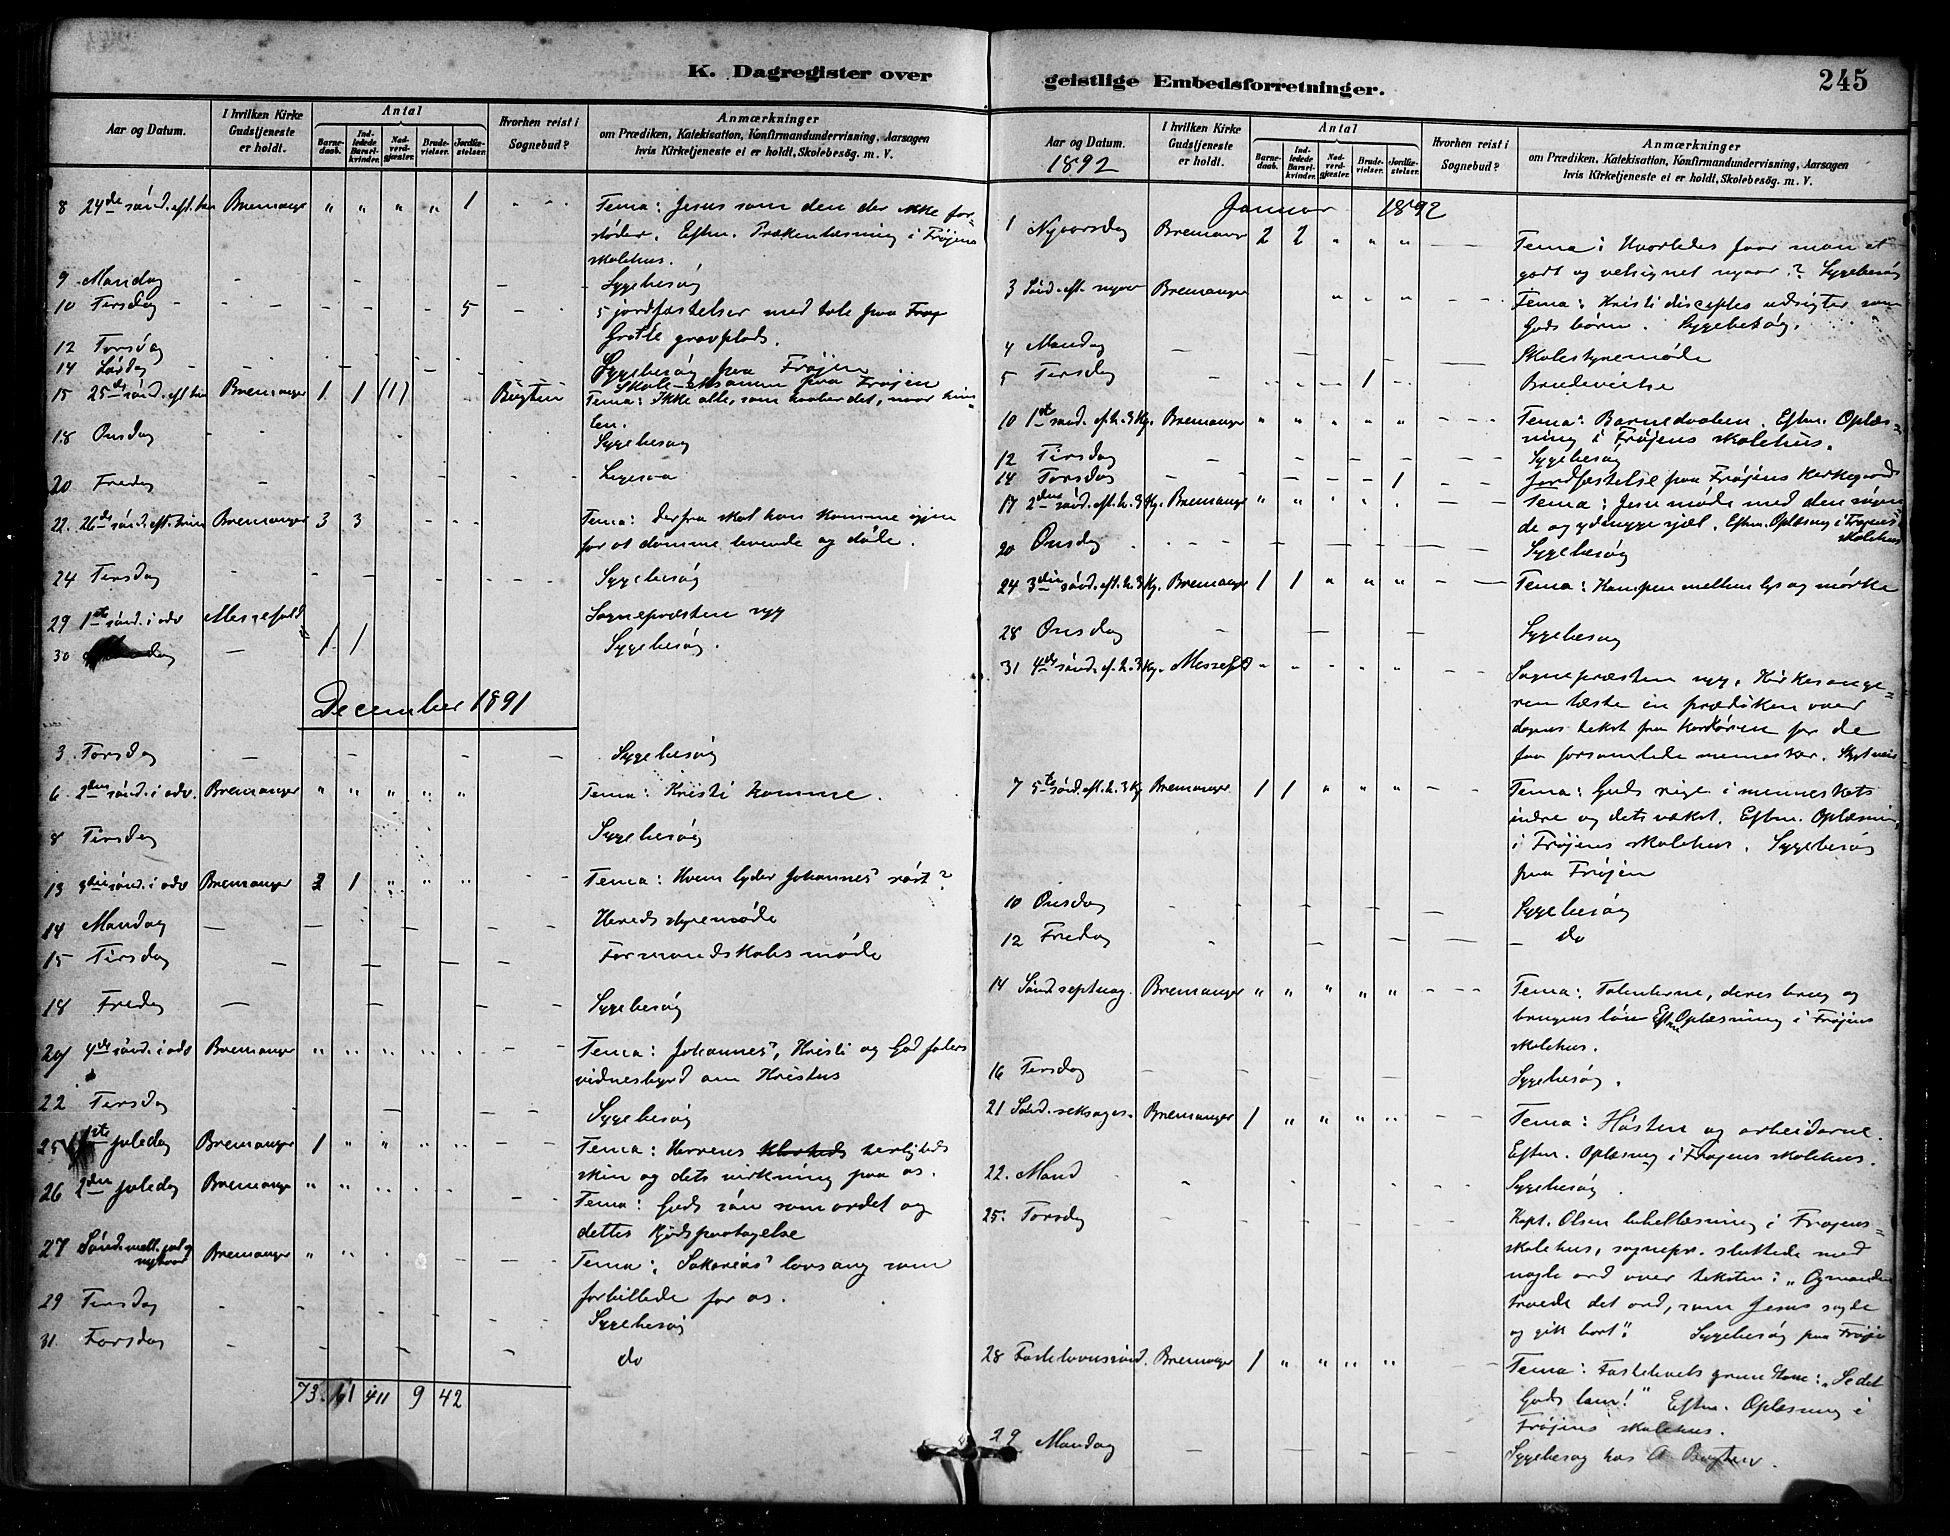 K. Dagregister over
Aar og Datum.
I hvilken Kirke Gudstjeneste er holdt.
Antal
Barnedaab.
Indledede Barselkvinder.
Nadverdgjæster.
Brudevielser.
Jordfæstelser.
Hvorhen reist i Sognebud?
Anmærkninger
om Prædiken, Katekisation, Konfirmandundervisning, Aarsagen
hvis Kirketjeneste ei er holdt, Skolebesøg. m. V.
8 24de sønd. eft. trin Bremanger " " " " 1 - - Tema: Jesus som den der ikke for-
støder. Eftm. Prækenlæsning i Frøjens
skolehus.
9 Mandag - Sygebesøg
10 Tirsdag - - - - 5 - 5 jordfæstelser med tale paa
Grotle gravplads.
12 Torsdag
14 Lørdag - Sygebesøg paa Frøjen
Skole-eksamen paa Frøjen
15 25de sønd. eft. trin Bremanger 1 1 (1) Bugten Tema: Ikke alle, som haaber det, naar him-
len.
18 Onsdag - Sygebesøg
20 Fredag - Ligesaa
22. 26de sønd. eft. trin Bremanger 3 3 - - - Tema: Derfra skal han komme igjen
for at dømme levende og døde.
24 Tirsdag - Sygebesøg
29 1ste sønd. i adv Sognepræsten syg
30 - 1 1 Sygebesøg.
December 1891
3 Torsdag - Sygebesøg
6 2den sønd. i adv. Bremanger " " " " " Tema: Kristi komme.
8 Tirsdag Sygebesøg
13 3die sønd. i adv Bremanger 2 1 " " " - - Tema: Hvem lyder Johannes' røst?
14 Mandag - Heredsstyremøde
15 Tirsdag - Formandskabsmøde
18 Fredag - Sygebesøg
20 4de sønd. i adv Bremanger " " " " " - - Tema: Johannes', Kristi og Gud faders
vidnesbyrd om Kristus
22 Tirsdag - Sygebesøg
25 1ste juledag Bremanger 1 " " " " - - Tema: Herrens herligheds
skin og dets virkning paa os.
26 2den juledag Bremanger " " " " " Tema: Guds søn som ordet og
dettes kjødspaatagelse
27 Sønd. mell. jul og nytaar Bremanger " " " " " - - Tema: Sakarias' lovsang som
forbillede for os.
29 Tirsdag - Sygebesøg
31. Torsdag - do
73 61 411 9 42
geistlige Embedsforretninger.
245
Aar og Datum.
1892
I hvilken Kirke Gudstjeneste er holdt.
Antal
Barnedaab.
Indledede Barselkvinder.
Nadverdgjæster.
Brudevielser.
Jordfæstelser.
Hvorhen reist i Sognebud?
Anmærkninger
om Prædiken, Katekisation, Konfirmandundervisning, Aarsagen
hvis Kirketjeneste ei er holdt, Skolebesøg. m. V.
Januar 1892
1 Nyaarsdag Bremanger 2 2 " " " - - Tema: Hvorledes faar man et
godt og velsignet nyaar? Sygebesøg
3 Sønd. eft. nyaar Bremanger " " " - - Tema: Kristi disciples udsigter som
Guds børn. Sygebesøg.
4 Mandag - Skolestyremøde
5 Tirsdag - - - 1 - Brudevielse
10 1ste sønd. eft. h. 3 Kg. Bremanger " " " " " - - Tema: Barnedaaben. Eftm. Oplæs-
ning i Frøjens skolehus.
12 Tirsdag - Sygebesøg
14 Torsdag - - - - 1 - Jordfæstelse paa Frøjens Kirkegaard
17 2den sønd. eft. h. 3 Kg. Bremanger " " " " - - Tema: Jesu møde med den
de og ydmyge sjæl. Eftm. Oplæsning i Frøjens
skolehus
20 Onsdag - Sygebesøg
24 3die sønd. eft. h. 3 Kg. Bremanger 1 1 " " " - - Tema: Kampen mellem lys og mørke
28 Onsdag - Sygebesøg
31 4de sønd. ef. h. 3 Kg. " " " " " - - Sognepræsten syg. Kirkesange-
ren læste en prædiken over
dagens tekst fra Kordøren for de
faa forsamlede mennesker.
7 5te sønd. eft. h. 3 Kg Bremanger. 1 1 " " " - - Tema: Guds rige i menneskets
indre og dets vækst. Eftm. Oplæsning
i Frøjens skolehus. Sygebesøg
paa Frøjen
10 Onsdag - Sygebesøg
12 Fredag - do
14 Sønd. septuag. Bremanger " " " " " - - Tema: Talenterne, deres brug og
brugens løn Eftm Oplæsning i Frøjens
skolehus.
16 Tirsdag - Sygebesøg.
21 Sønd. seksages. Bremanger 1 " " " " - - Tema: Høsten og arbeiderne.
Eftm. Oplæsning i Frøjens skolehus.
22. Mand - Sygebesøg.
25. Torsdag - Kapt. Olsen bibellæsning i Frøjens-
skolehus, sognepr. sluttede med
nogle ord over teksten: "Og manden
troede det ord, som Jesus sagde
og gik bort". Sygebesøg paa Frøje
28 Fastelavnssønd. Bremanger 1 " " " " - - Tema: Fastelavets grun tone: "Se det
Guds lam!" Eftm. Oplæsning i
Frøjens skolehus.
29 Mandag - Sygebesøg hos A. Bugten.